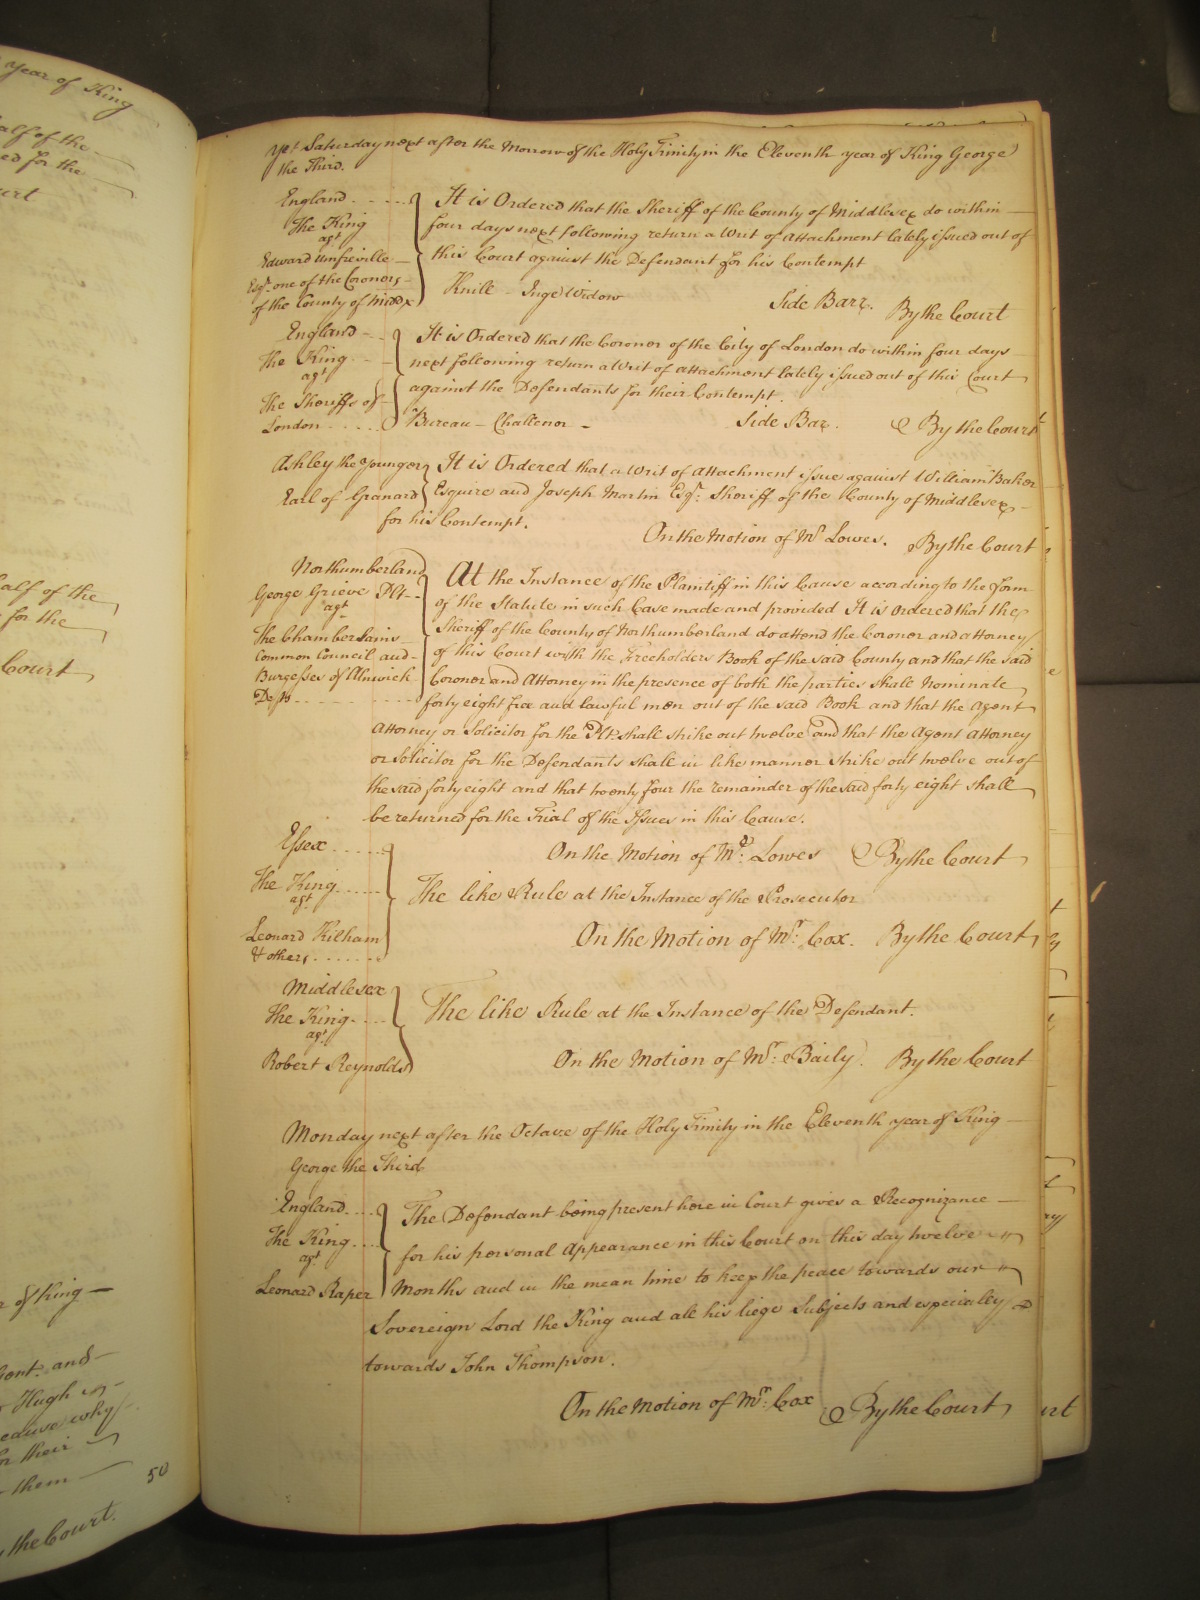 Yet Saturday next after the Morrow of the Holy Trinity in the Eleventh year of King George
the Third.
England
The King
agt
Edward Umfreville
Esqr. one of the Coroners
of the County of Middx
It is Ordered that the Sheriff of the County of Middlesex do within
four days next following return a Writ of Attachment lately issued out of
this Court against the Defendant for his Contempt
Knill - Inge Widow Side Barr. By the Court
England
The King
agt
The Sheriffs of
London
It is Ordered that the Coroner of the City of London do within four days
next following return a Writ of Attachment lately issued out of this Court
against the Defendants for their Contempt.
Bureau - Challenor - Side Bar. By the Court
Ashley the younger
Earl of Granard
It is Ordered that a Writ of Attachment issue against William Baker
Esquire and Joseph Martin Esqr. Sheriff of the County of Middlesex
for his Contempt.
On the Motion of Mr Lowes. By the Court
Northumberland
George Grieve Plt
agt
The Chamberlains
Common Council and
Burgesses of Alnwick
Defts
At the Instance of the Plaintiff in this Cause according to the form
of the Statute in such Case made and provided It is ordered that the
Sheriff of the County of Northumberland do attend the Coroner and attorney
of this Court with the Freeholders Book of the said County and that the said
Coroner and Attorney in the presence of both the parties shall Nominate
forty eight free and lawful men out of the said Book and that the Agent
Attorney or Solicitor for the Plt shall strike out twelve and that the Agent Attorney
or Solicitor for the Defendants shall in like manner strike out twelve out of
the said forty eight and that twenty four the remainder of the said forty eight shall
be returned for the Trial of the Issues in this Cause.
On the Motion of Mr. Lowes By the Court
Essex
The King
agt
Leonard Kilham
& others
The like Rule at the Instance of the Prosecutor
On the Motion of Mr. Cox. By the Court
Middlesex
The King
agt
Robert Reynolds
The like Rule at the Instance of the Defendant.
On the Motion of Mr. Baily. By the Court
Monday next after the Octave of the Holy Trinity in the Eleventh year of King
George the Third
England
The King
agt
Leonard Raper
The Defendant being present here in Court gives a Recognizance
for his personal Appearance in this Court on this day twelve
Months and in the mean time to keep the peace towards our
Sovereign Lord the King and all his liege Subjects and especialey
towards John Thompson.
On the Motion of Mr. Cox By the Court
year of King
half of the
for the
Court
half of the
for the
Court
of King
and
Hugh
why
their
them
50
the Court.